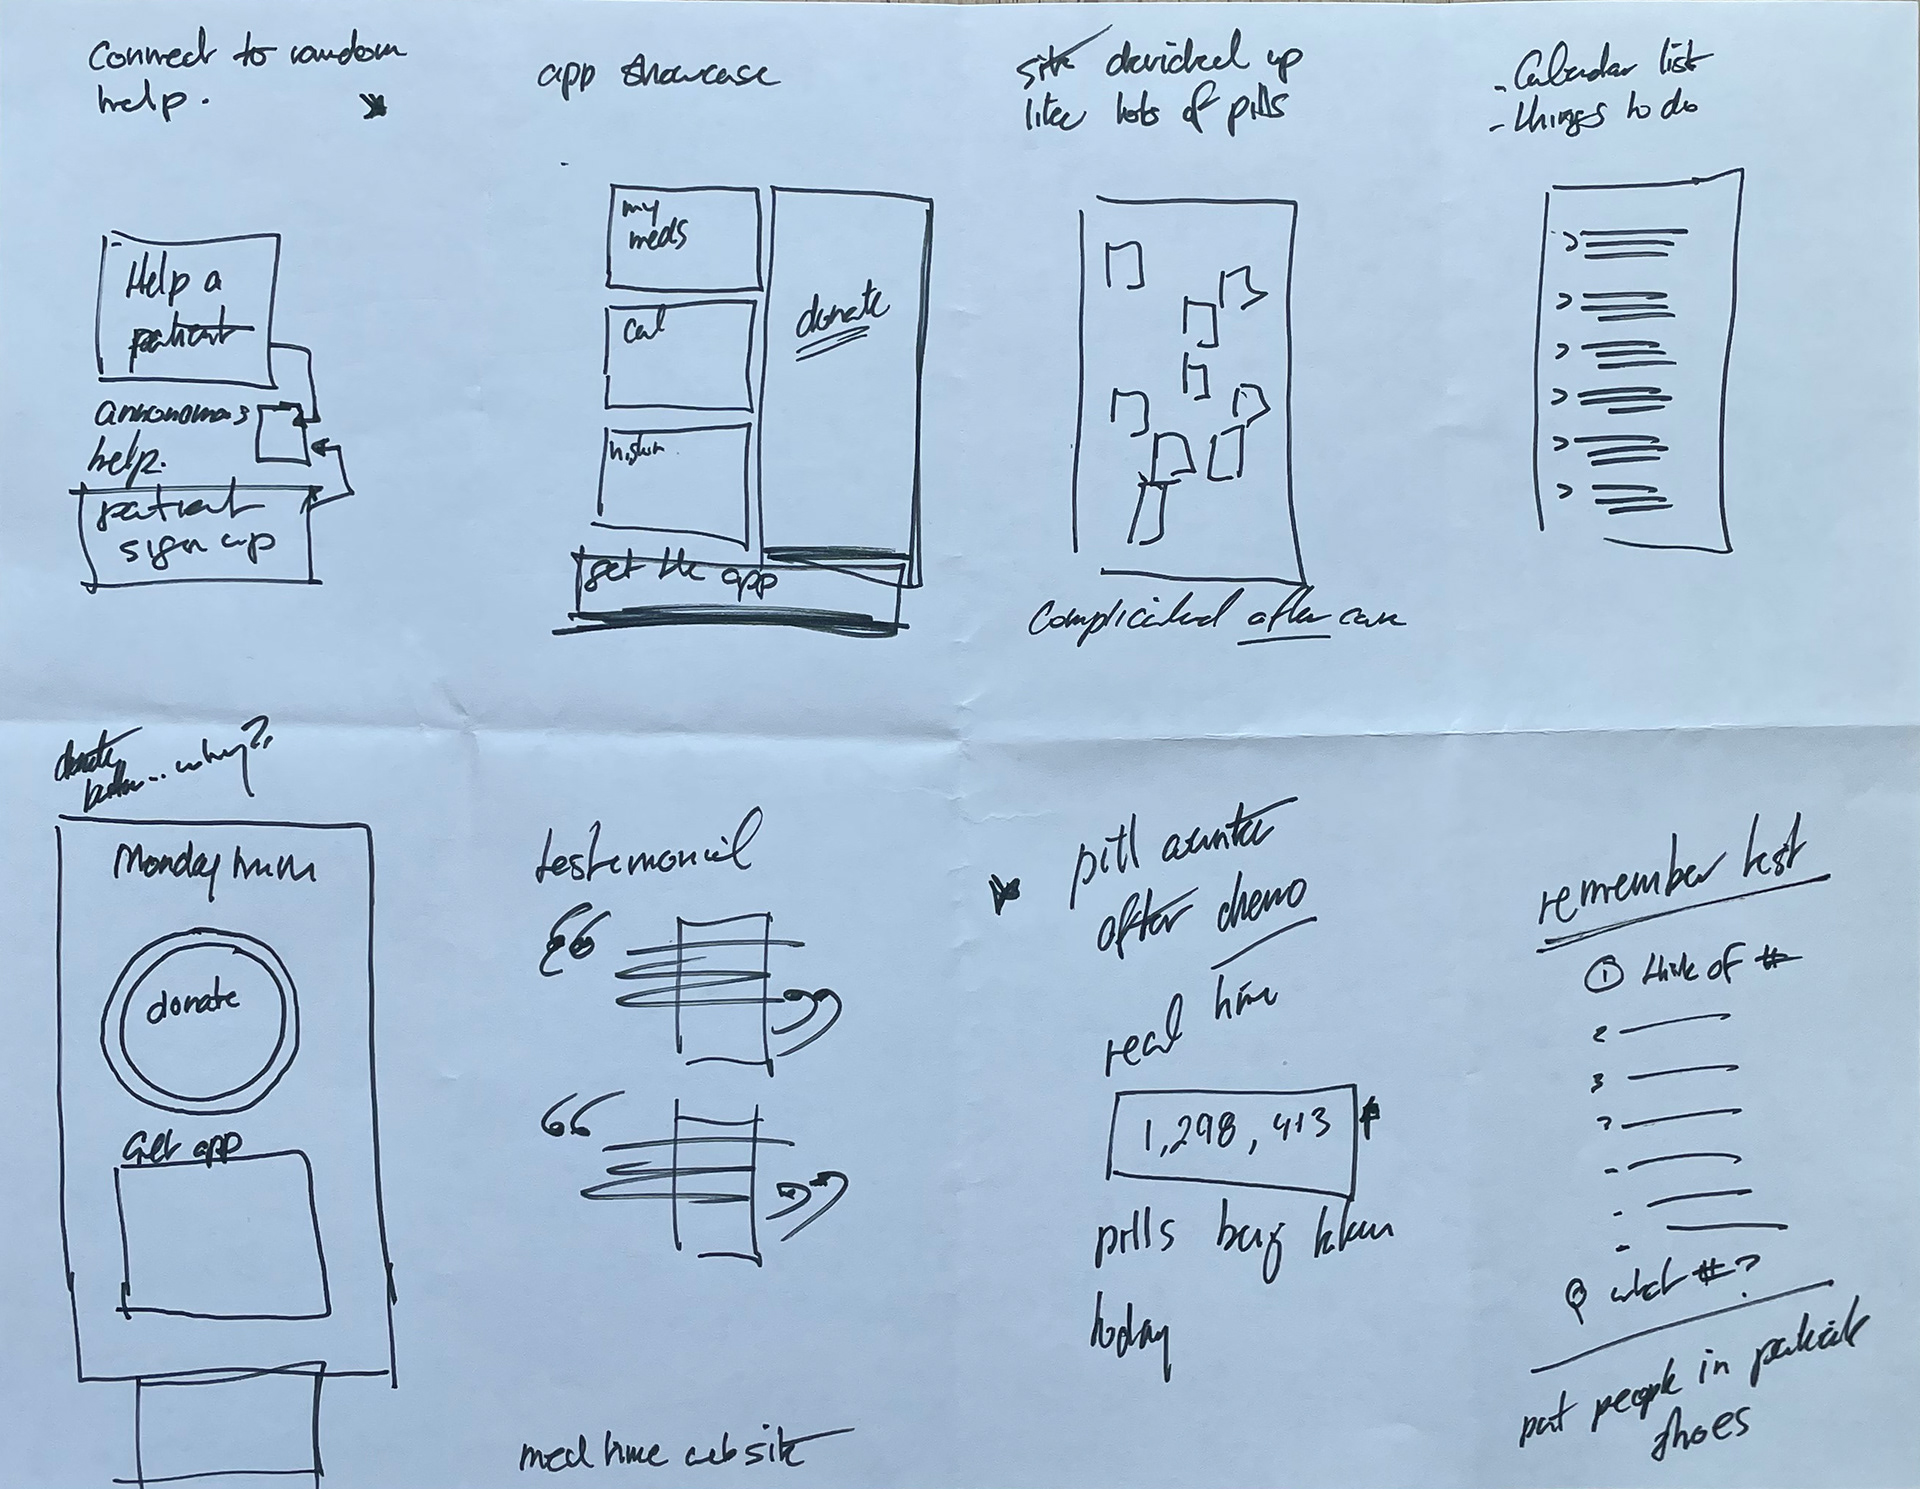 Connect to random
help.
Help a
patient
annonomas
help.
patient
sign up
app showcase
my
meds
cal
donate
get the app
site devided up
like lots of pills
Complicated after care
- Calendar list
- things to do
donate
button... why?
Monday
donate
Get app
testemonial
““
””
““
””
med time website
pill counter
after chemo
real time
1,298,413
pills being taken
today
remember test
① think of #
2
3
?
-
-
-
Q what #?
put people in patient
shoes